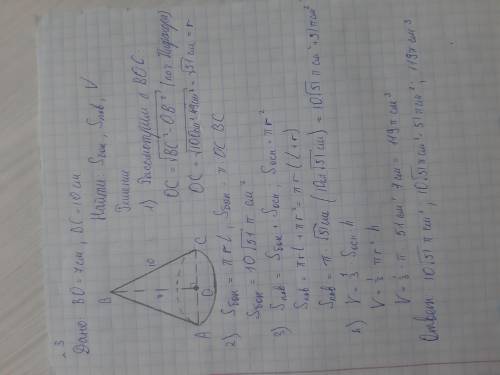 № 3
Дано: BO = 7 см, BC = 10 см
Найти: Sбок, Sпов, V
Решение
B
10
7
A
O
C
1) Рассмотрим △ BOC
OC = √BC² - OB² (по т. Пифагора)
OC = √100см² - 49см² = √51 см = r
2) Sбок = πrl, Sбок = π OC BC
Sбок = 10√51 π см²
3) Sпов = Sбок + Sосн, Sосн = πr²
Sпов = πrl + πr² = πr(l + r)
Sпов = π √51 см (10см √51 см) = 10√51 π см² + 51π см²
4) V = 1/3 Sосн h
V = 1/3 πr² h
V = 1/3 π 51 см² 7 см = 119π см³
Ответ: 10√51 π см², 10√51π см² 51π см², 119π см³